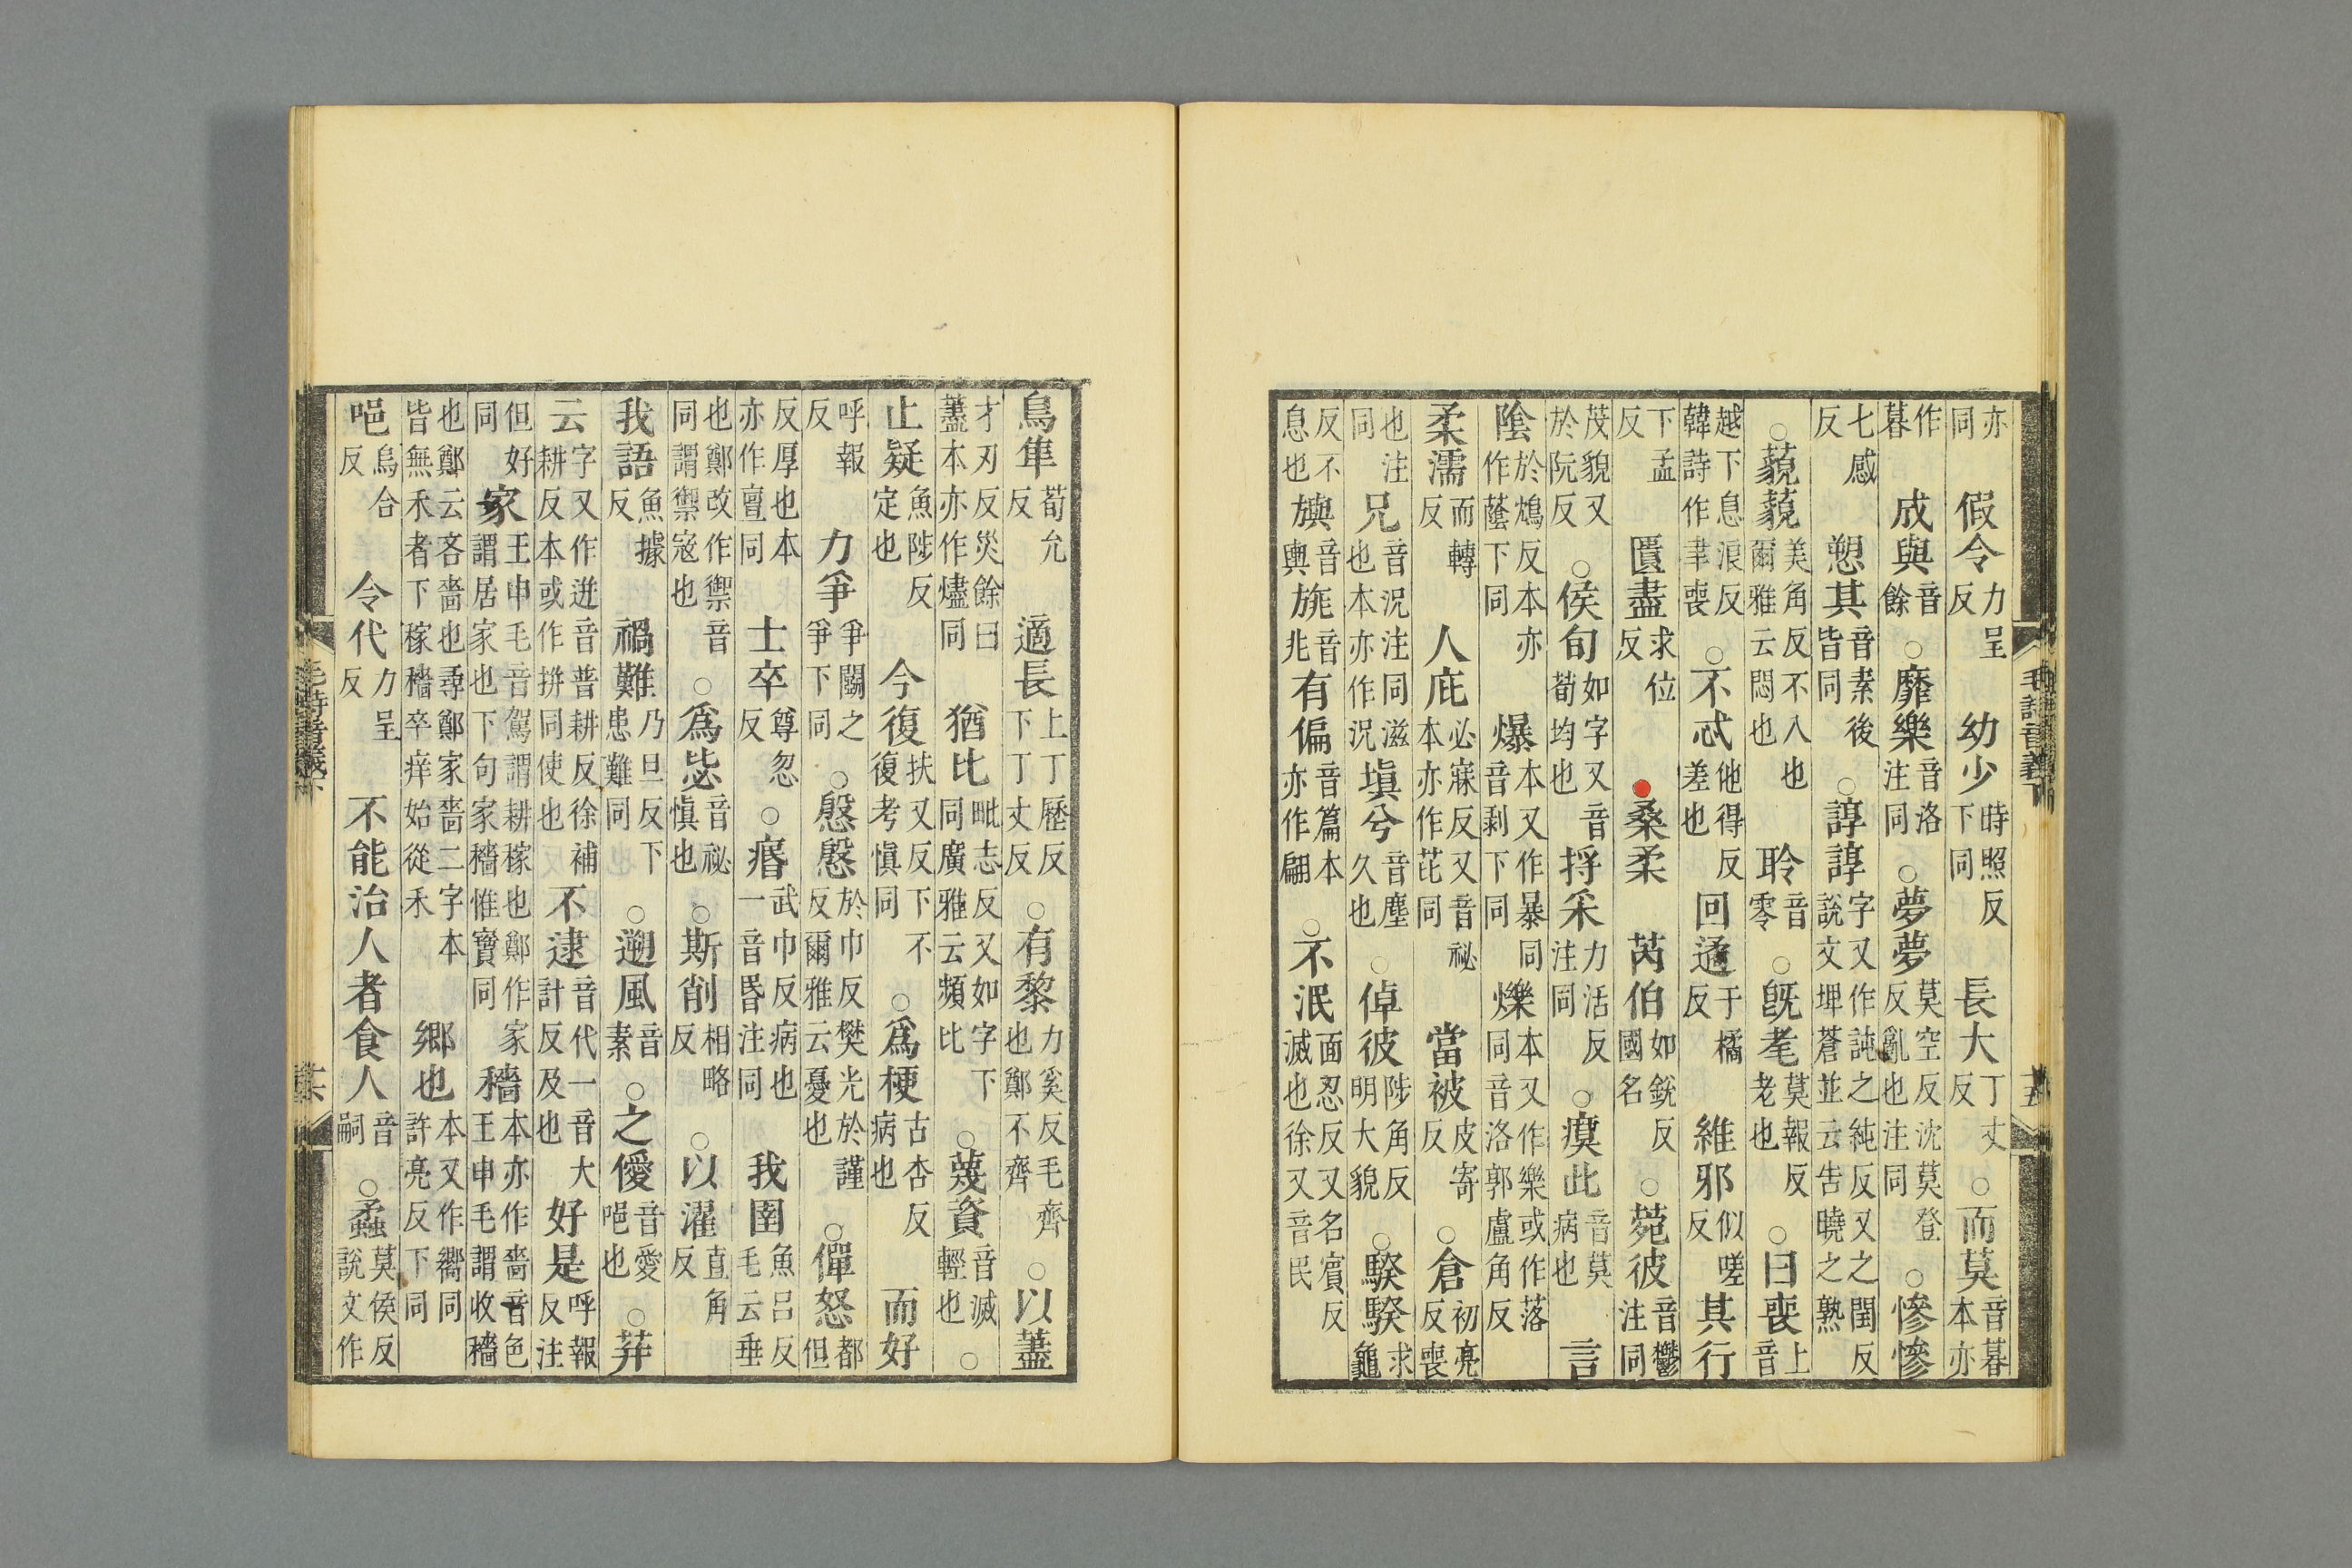 亦同假令力呈反幼少時照反下同長大丁丈反○而莫音暮本亦
作暮成與音餘○靡樂音洛注同○夢夢莫空反沈莫登反亂也注同○慘慘
七感反愬其音素後皆同○諄諄字又作訰之純反又之閏反說文埤蒼並云告曉之熟
○藐藐美角反不入也爾雅云悶也聆音零○旣耄莫報反老也○曰喪上音
越下息浪反韓詩作聿喪○不忒他得反差也回遹于橘反維邪似嗟反其行
下孟反匱盡求位反桑柔芮伯如銳反國名○菀彼音鬱注同
茂貌又於阮反○侯旬如字又音荀均也捋采力活反注同○瘼此音莫病也言
陰於鴆反本亦作蔭下同爆本又作暴同音剥下同爍本又作樂或作落同音洛郭盧角反
柔濡而轉反人庇必寐反又音祕本亦作芘同當被皮寄反○倉初亮反喪
也注同兄音況注同滋也本亦作況塡兮音塵久也○倬彼陟角反明大貌○騤騤求龜
反不息也旟音輿旐音兆有偏音篇本亦作翩○不泯面忍反又名賓反滅也徐又音民
毛詩音義下
鳥隼荀允反適長上丁歷反下丁丈反○有黎力奚反毛齊也鄭不齊○以藎
才刃反災餘曰藎本亦作燼同猶比毗志反又如字下同廣雅云頻比○蔑資音滅輕也○
止疑魚陟反定也今復扶又反下不復考愼同○爲梗古杏反病也而好
呼報反力爭爭鬭之爭下同○慇慇於巾反樊光於謹反爾雅云憂也○僤怒都但
反厚也本亦作亶同士卒尊忽反○瘖武巾反病也一音昬注同我圉魚呂反毛云垂
也鄭改作禦音同謂禦寇也○爲毖音祕愼也○斯削相略反○以濯直角反
我語魚據反禍難乃旦反下患難同○遡風音素○之僾音愛唈也○荓
云字又作迸音普耕反徐補耕反本或作拼同使也不逮音代一音大計反及也好是呼報反注
但好同家王申毛音駕謂耕稼也鄭作家謂居家也下句家穡惟寶同穡本亦作嗇音色王申毛謂收穡
也鄭云吝嗇也尋鄭家嗇二字本皆無禾者下稼穡卒痒始從禾鄉也本又作嚮同許亮反下同
唈烏合反令代力呈反不能治人者食人音嗣○蟊莫侯反說文作